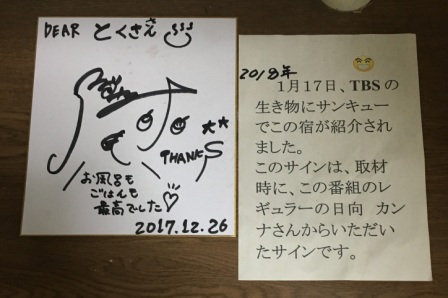 DEAR とくさん
THANKS
お風呂も
ごはんも
最高でした♡
2017.12.26
2018年
1月17日、TBSの
生き物にサンキュー
でこの宿が紹介され
ました。
このサインは、取材
時に、この番組のレ
ギュラーの日向 カン
ナさんからいただい
たサインです。